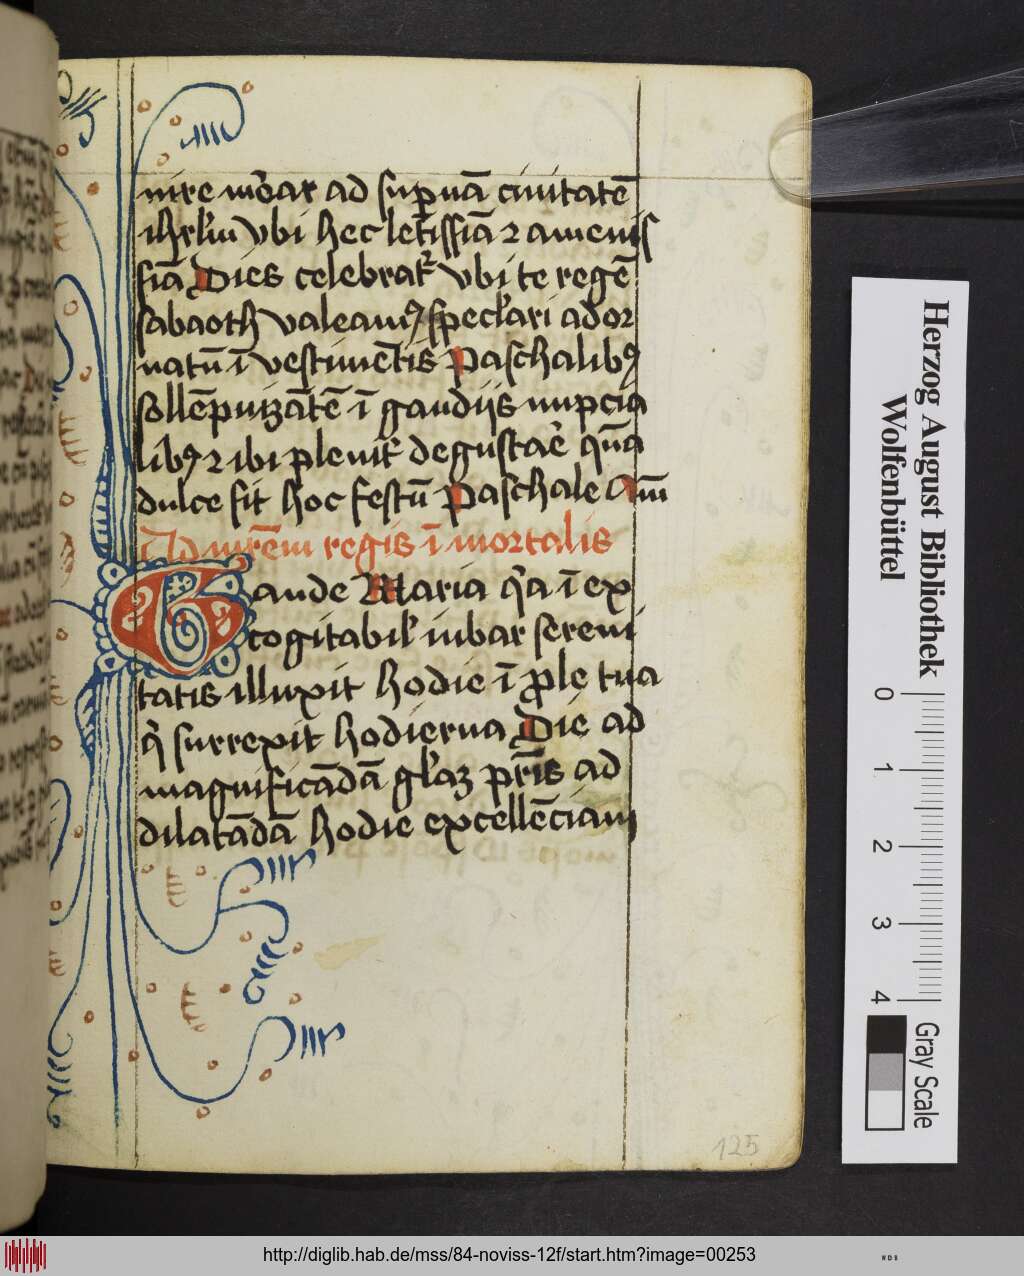 nire mẻar ad sup̄nā ciuitatē
ihrl̄m vbi hec letissīa ⁊ amenis
sīa Dies celebrat᷑ vbi te regē
sabaoth valeamꝰ spectari ador
natū ī vestimētis Paschalibꝫ
sollēpnizātē ī gaudijs nupcia
libꝫ ⁊ ibi pleniꝰ degustaē quā
dulce sit hoc festū Paschale Am̄
Ad mr̄em regis īmortalis
Gaude Maria qͥa ī ex
cogitabilꝰ iubar sereni
tatis illuxit hodie ī ꝓle tua
qͥ surrexit hodierna Die ad
magnificādā gl̄aꝫ pr̄is ad
dilatādā hodie excellēciam
125
Herzog August Bibliothek
Wolfenbüttel
0 1 2 3 4
Gray Scale
http://diglib.hab.de/mss/84-noviss-12f/start.htm?image=00253